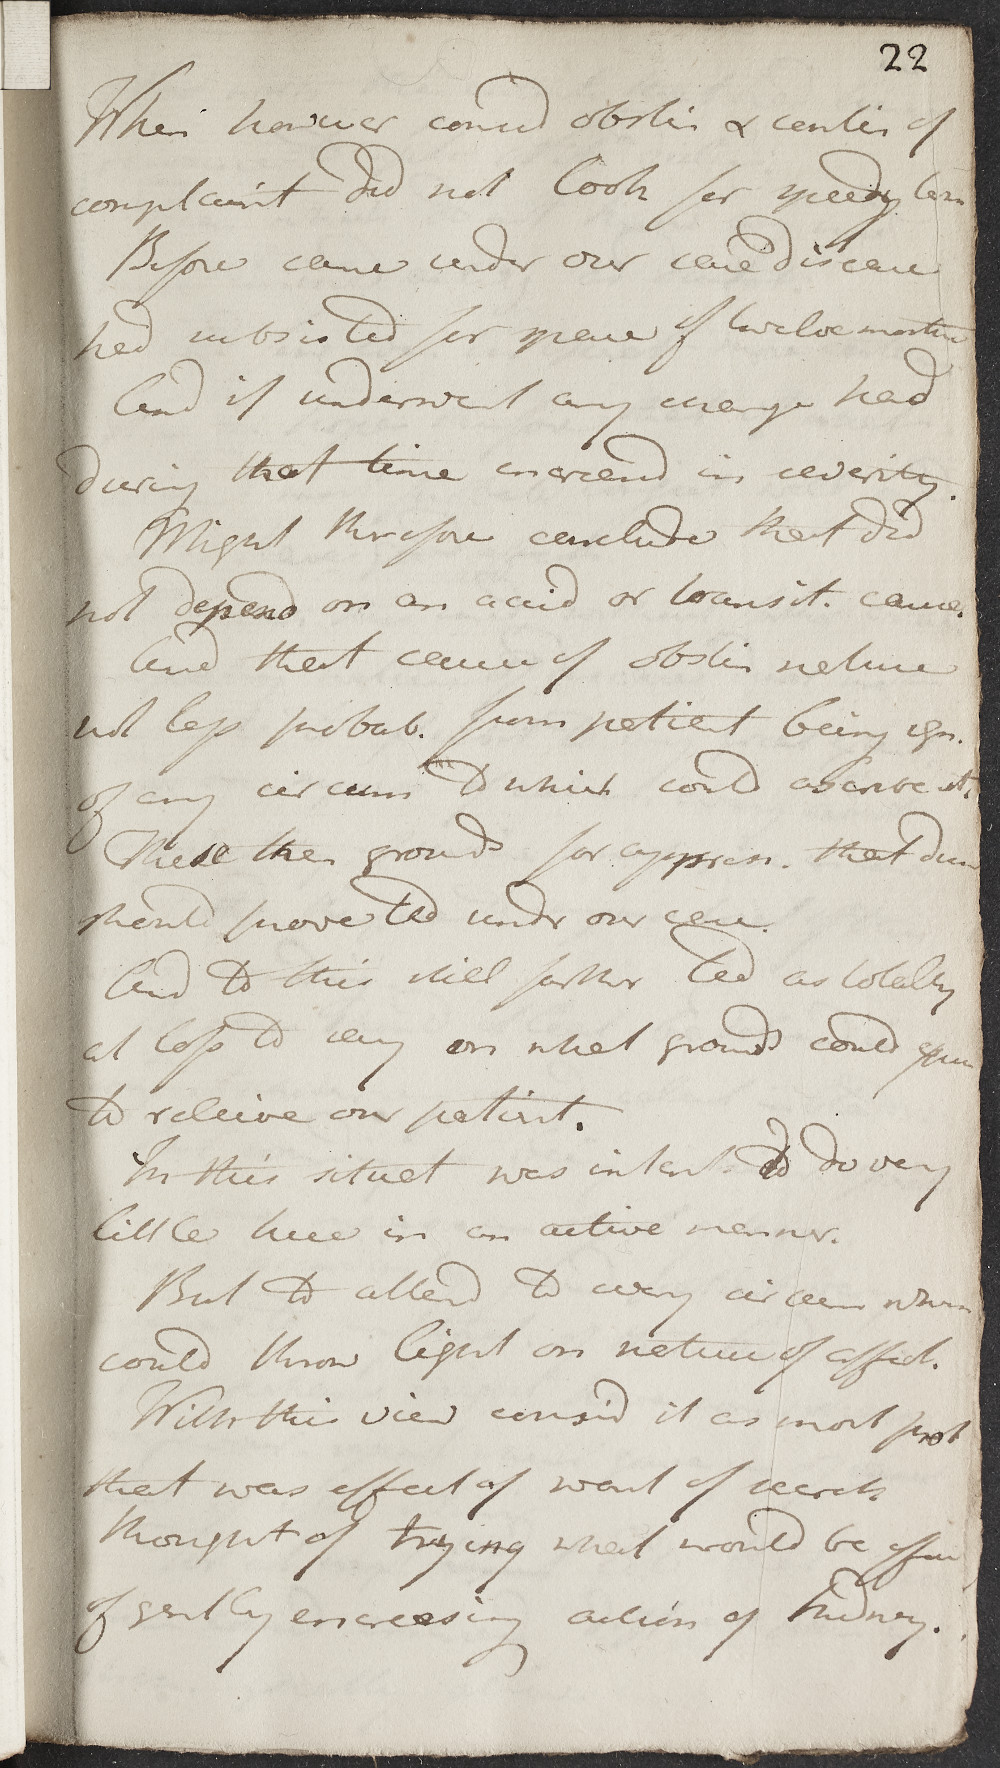 22
When however consid obstin & contin of
complaint did not look for speedy term
Before came under our care disease
had subsisted for space of twelve months
And if underwent any change had
during that time increasd in severity.
Might therefore conclude that did
not depend on an accid or transit. cause.
And that cause of obstin nature
not less probab. from patient being ign.
of any circum to which could ascribe it.
These then grounds for appreh. that dis
should prove ted under our care.
And to this still farther led as totally
at loss to say on what grounds could
to relieve our patient.
In this situat was intent. to do very
little here in an active manner.
But to attend to every circum which
could throw light on nature of affect.
With this view consid it as most prob
that was effect of want of secret
thought of trying what would be effec
of gently encreasing action of kidney.